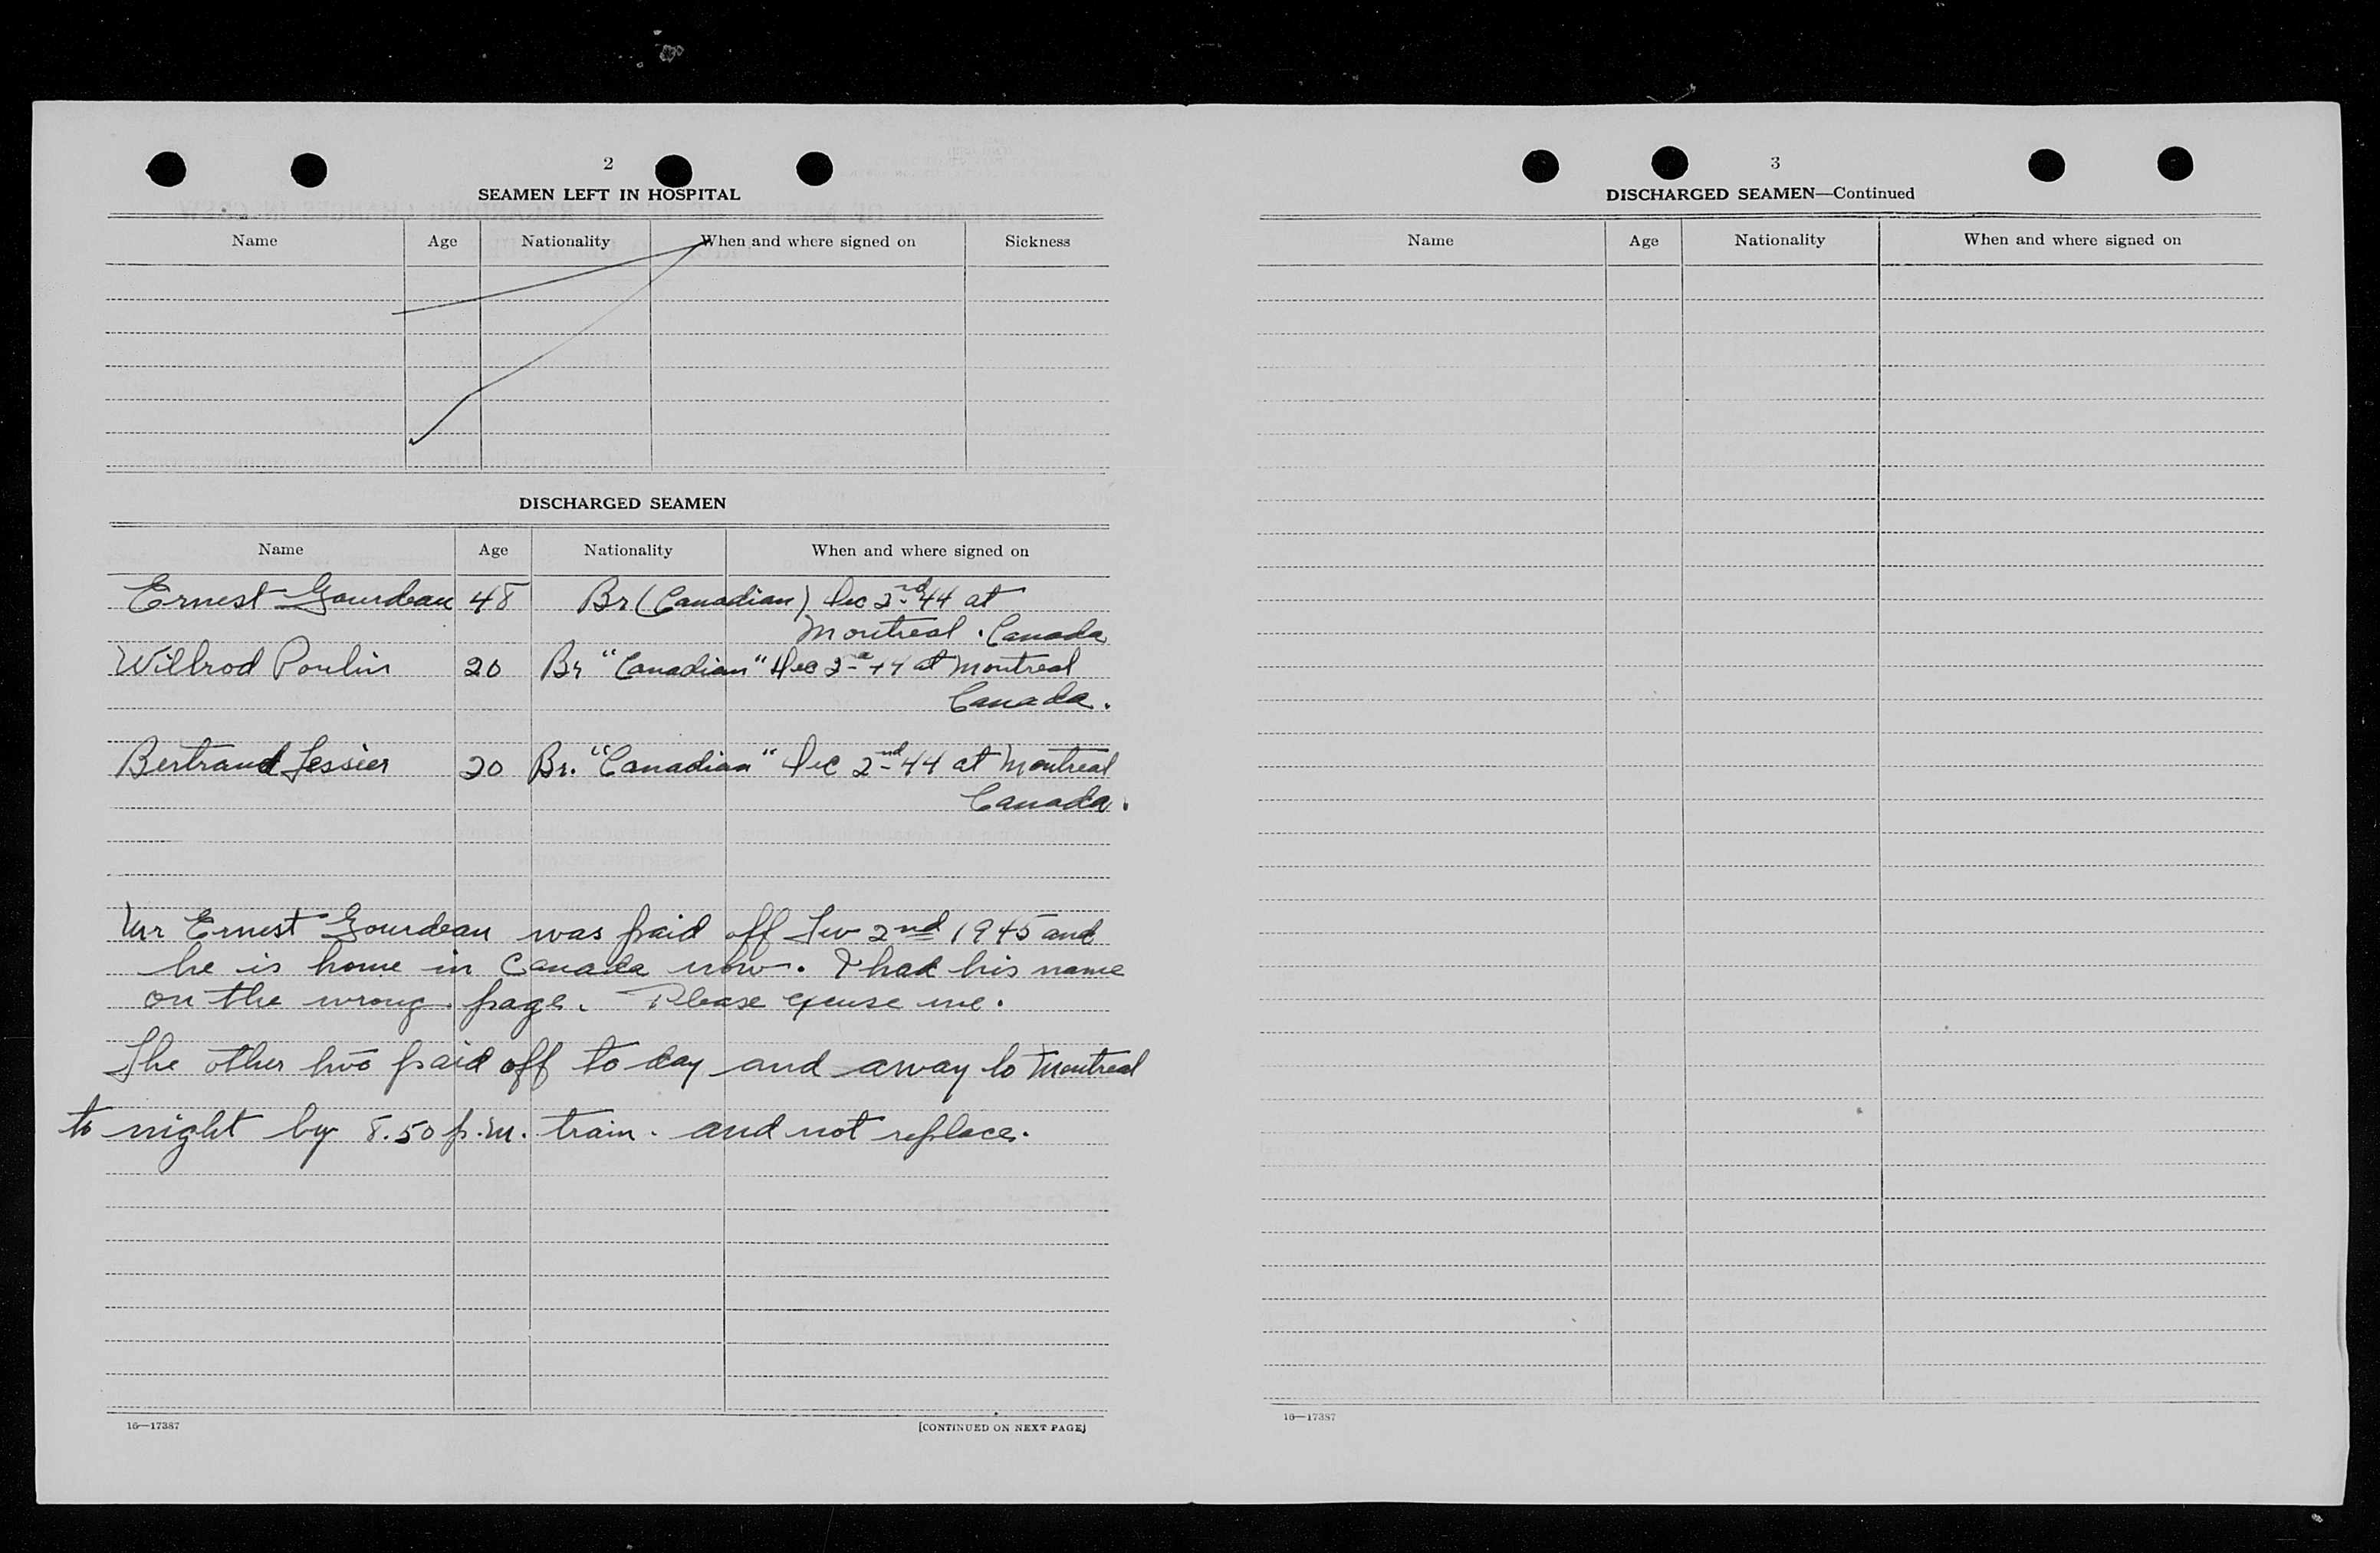 2
SEAMEN LEFT IN HOSPITAL
Name Age Nationality When and where signed on Sickness
DISCHARGED SEAMEN
Name Age Nationality When and where signed on
Ernest Gourdeau 48 Br (Canadian) Dec 2nd 44 at
Montreal . Canada
Willrod Poulin 20 Br "Canadian" Dec 2 44 at Montreal
Canada.
Bertrand Tessier 20 Br. "Canadian" Dec 2nd 44 at Montreal
Canada.
Mr Ernest Gourdeau was paid off 2nd 1945 and
he is home in Canada now. I had his name
on the wrong page. Please excuse me.
The other two paid off to day and away to Montreal
to night by 8.50 p.m. train. and not replace.
16—17387
[CONTINUED ON NEXT PAGE]
3
DISCHARGED SEAMEN—Continued
Name Age Nationality When and where signed on
16—17387